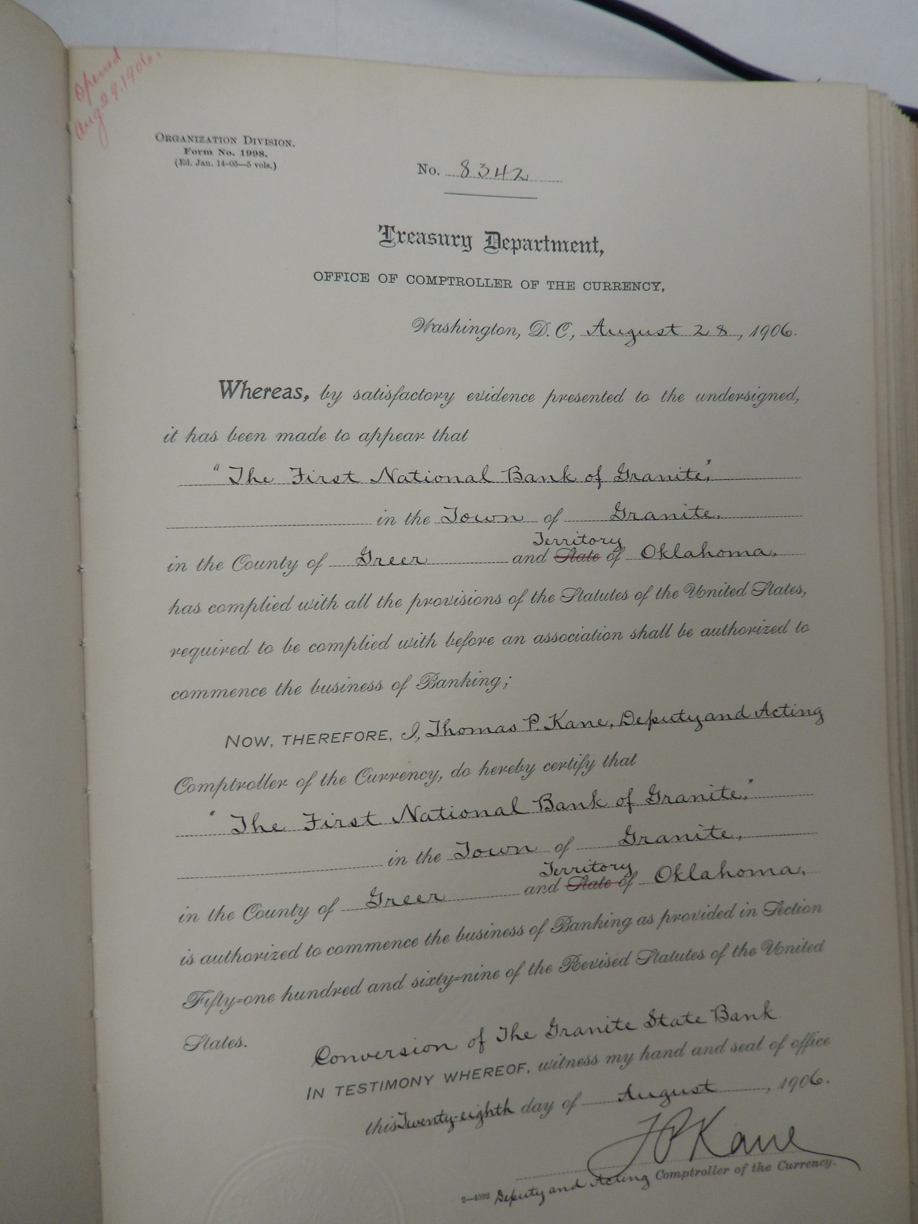 Opened
Aug 29, 1906.
ORGANIZATION DIVISION.
Form No. 1998.
(Ed. Jan. 14-05—5 vols.)
No. 8342
Treasury Department,
OFFICE OF COMPTROLLER OF THE CURRENCY,
Washington, D. C., August 28, 1906.
Whereas, by satisfactory evidence presented to the undersigned,
it has been made to appear that
"The First National Bank of Granite",
in the Town of Granite,
Territory
in the County of Greer and State of Oklahoma,
has complied with all the provisions of the Statutes of the United States,
required to be complied with before an association shall be authorized to
commence the business of Banking;
NOW, THEREFORE, I, Thomas P. Kane, Deputy and Acting
Comptroller of the Currency, do hereby certify that
"The First National Bank of Granite,"
in the Town of Granite,
Territory
in the County of Greer and State of Oklahoma,
is authorized to commence the business of Banking as provided in Section
Fifty=one hundred and sixty=nine of the Revised Statutes of the United
States.
Conversion of The Granite State Bank
IN TESTIMONY WHEREOF, witness my hand and seal of office
this Twenty-eighth day of August, 1906.
T P Kane
Deputy and Acting Comptroller of the Currency.